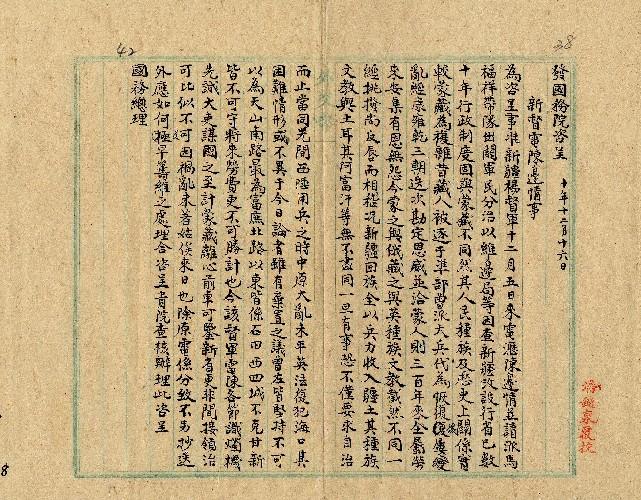 38
42
發國務院咨呈 十年十二月十六日
新督電陳邊情事
為咨呈事准新疆楊督軍十二月五日來電瀝陳邊情並請派馬
福祥帶隊出關軍民分治以維邊局等因查新疆改設行省已數
十年行政制度固與蒙藏不同然其人民種族及歷史上關係實
較蒙藏為複雜昔藏人被逐于準部曾派大兵代為恢復後屢變
亂經康雍乾三朝迭次勘定恩威並洽蒙人則三百年來全屬勞
來安集有恩無怨今蒙之與俄藏之與英種族文教截然不同一
經挑撥尚反唇而相稽況新疆回族全以兵力收入疆土其種族
文教與土耳其阿富汗等無不盡同一旦有事恐不僅要求自治
而止當同光間西陲用兵之時中原大亂未平英法復犯海口其
困難情形或不異于今日論者雖有棄置之議曾左皆堅持不可
以為天山南路最為富庶北路以東皆係石田西四城不克甘新
皆不可守將來勞費更不可勝計也今該督軍電陳各節識燭機
先誠大吏謀國之至計蒙藏離心前車可鑒新省更非間接領治
可比似不可因禍亂未著姑俟來日也除原電係分致不另抄送
外應如何極早籌維之處理合咨呈貴院查核辦理此咨呈
國務總理
8